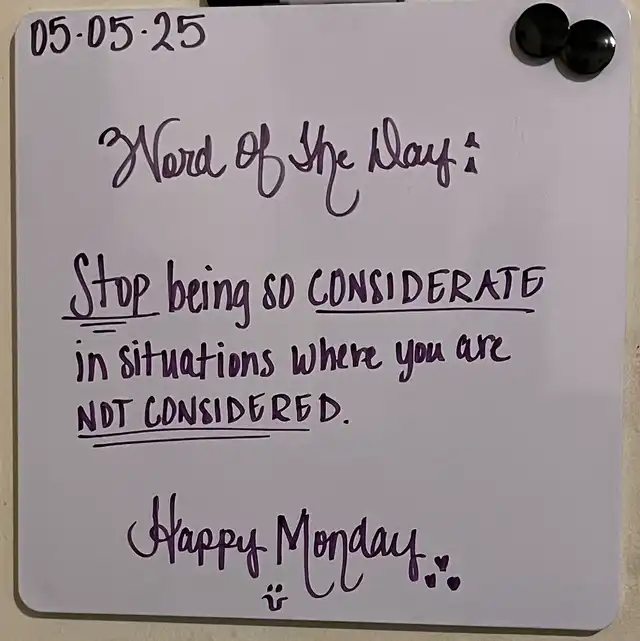 05.05.25
Word Of The Day:
Stop being so CONSIDERATE
in situations where you are
NOT CONSIDERED.
Happy Monday